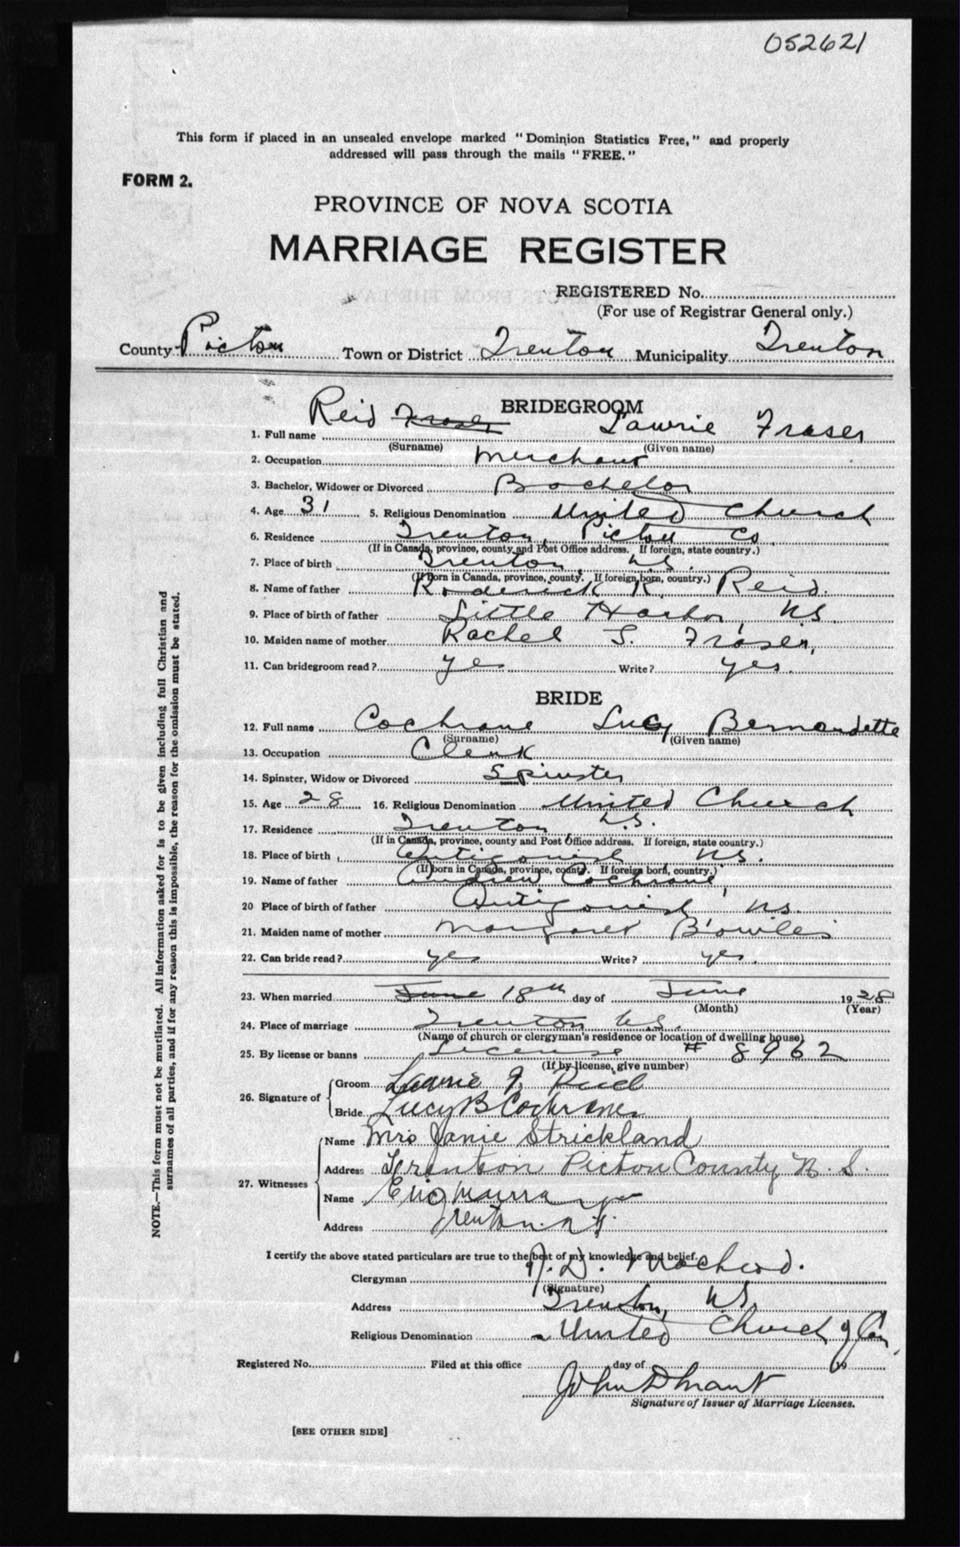 052621
This form if placed in an unsealed envelope marked "Dominion Statistics Free," and properly
addressed will pass through the mails "FREE."
FORM 2.
PROVINCE OF NOVA SCOTIA
MARRIAGE REGISTER
REGISTERED No.
(For use of Registrar General only.)
County Pictou Town or District Trenton Municipality Trenton
BRIDEGROOM
1. Full name Reid Fraser Lawrie Fraser
(Surname) (Given name)
2. Occupation Merchant
3. Bachelor, Widower or Divorced Bachelor
4. Age 31 5. Religious Denomination United Church
6. Residence Trenton, Pictou Co.
(If in Canada, province, county and Post Office address. If foreign, state country.)
7. Place of birth Trenton, N.S.
(If born in Canada, province, county. If foreign born, country.)
8. Name of father Roderick R. Reid.
9. Place of birth of father Little Harbor, N.S.
10. Maiden name of mother Rachel S. Fraser,
11. Can bridegroom read? yes Write? yes.
BRIDE
12. Full name Cochrane Lucy Bernardette
(Surname) (Given name)
13. Occupation Clerk
14. Spinster, Widow or Divorced Spinster
15. Age 28 16. Religious Denomination United Church
17. Residence Trenton N.S.
(If in Canada, province, county and Post Office address. If foreign, state country.)
18. Place of birth Antigonish N.S.
(If born in Canada, province, county. If foreign born, country.)
19. Name of father Andrew Cochrane
20 Place of birth of father Antigonish N.S.
21. Maiden name of mother Margaret Bowles
22. Can bride read? yes Write? yes.
23. When married June 18th day of June 1928
(Month) (Year)
24. Place of marriage Trenton N.S.
(Name of church or clergyman's residence or location of dwelling house)
25. By license or banns License # 8962
(If by license, give number)
26. Signature of
Groom Lawrie F. Reid
Bride Lucy B Cochrane
27. Witnesses
Name Mrs Janie Strickland
Address Trenton Pictou County N. S.
Name
Address Trenton. N.S.
I certify the above stated particulars are true to the best of my knowledge and belief.
Clergyman
(Signature)
Address Trenton, N.S.
Religious Denomination United Church of Can.
Registered No. Filed at this office day of 19
John D Grant
Signature of Issuer of Marriage Licenses.
[SEE OTHER SIDE]
NOTE.—This form must not be mutilated. All information asked for is to be given including full Christian and
surnames of all parties, and if for any reason this is impossible, the reason for the omission must be stated.